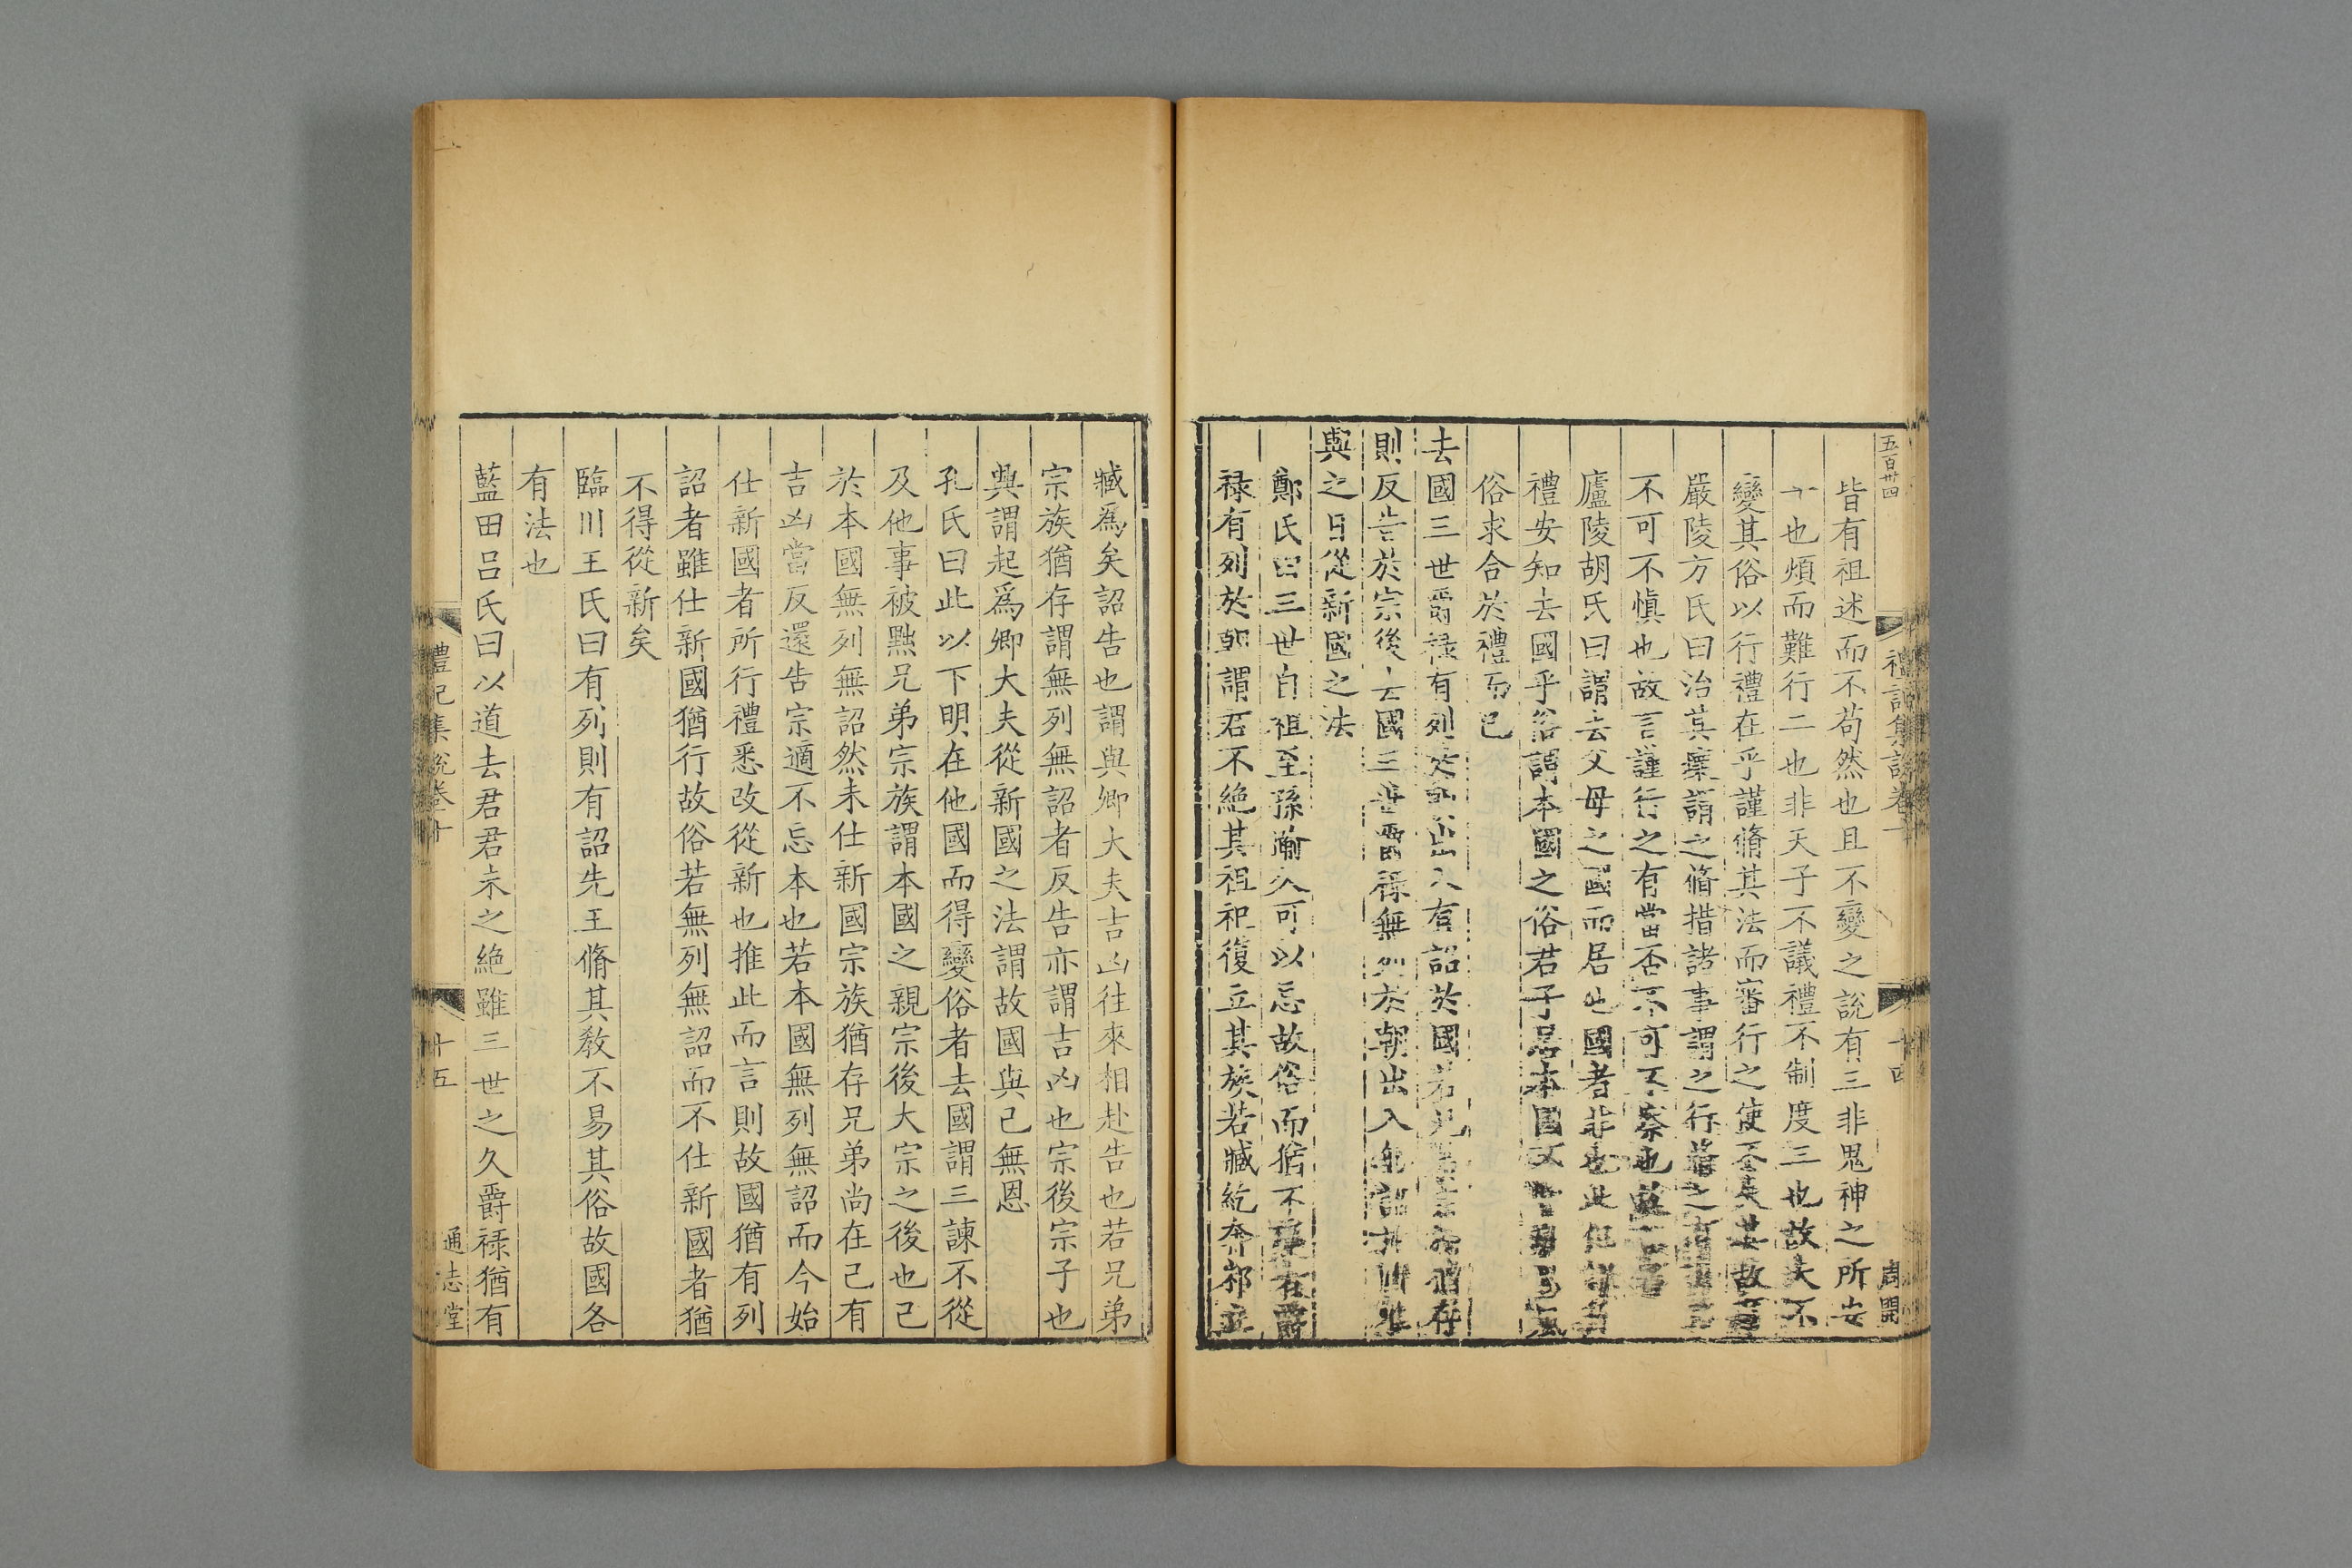 五百卅四
禮記集說卷十
十四
周開
皆有祖述而不苟然也且不變之說有三非鬼神之所安
一也煩而難行二也非天子不議禮不制度三也故夫不
變其俗以行禮在乎謹脩其法而審行之使不失其故
嚴陵方氏曰治其壞謂之脩措諸事謂之行
不可不慎也故言謹行之有當否不可不察也
廬陵胡氏曰謂去父母之國而居他國者非也此
禮安知去國乎俗謂本國之俗君子居本國
俗求合於禮而已
去國三世爵祿有列於朝出入有詔於國若兄弟宗族猶存
則反告於宗後去國三世爵祿無列於朝出入無詔於國唯
興之日從新國之法
鄭氏曰三世自祖至孫踰久可以忘故俗而猶不變者爵
祿有列於朝謂君不絕其祖祀復立其族若臧紇奔邾立
臧爲矣詔告也謂與卿大夫吉凶往來相赴告也若兄弟
宗族猶存謂無列無詔者反告亦謂吉凶也宗後宗子也
興謂起爲卿大夫從新國之法謂故國與己無恩
孔氏曰此以下明在他國而得變俗者去國謂三諫不從
及他事被黜兄弟宗族謂本國之親宗後大宗之後也己
於本國無列無詔然未仕新國宗族猶存兄弟尚在己有
吉凶當反還告宗適不忘本也若本國無列無詔而今始
仕新國者所行禮悉改從新也推此而言則故國猶有列
詔者雖仕新國猶行故俗若無列無詔而不仕新國者猶
不得從新矣
臨川王氏曰有列則有詔先王脩其敎不易其俗故國各
有法也
藍田呂氏曰以道去君君未之絕雖三世之久爵祿猶有
禮記集說卷十
十五
通志堂